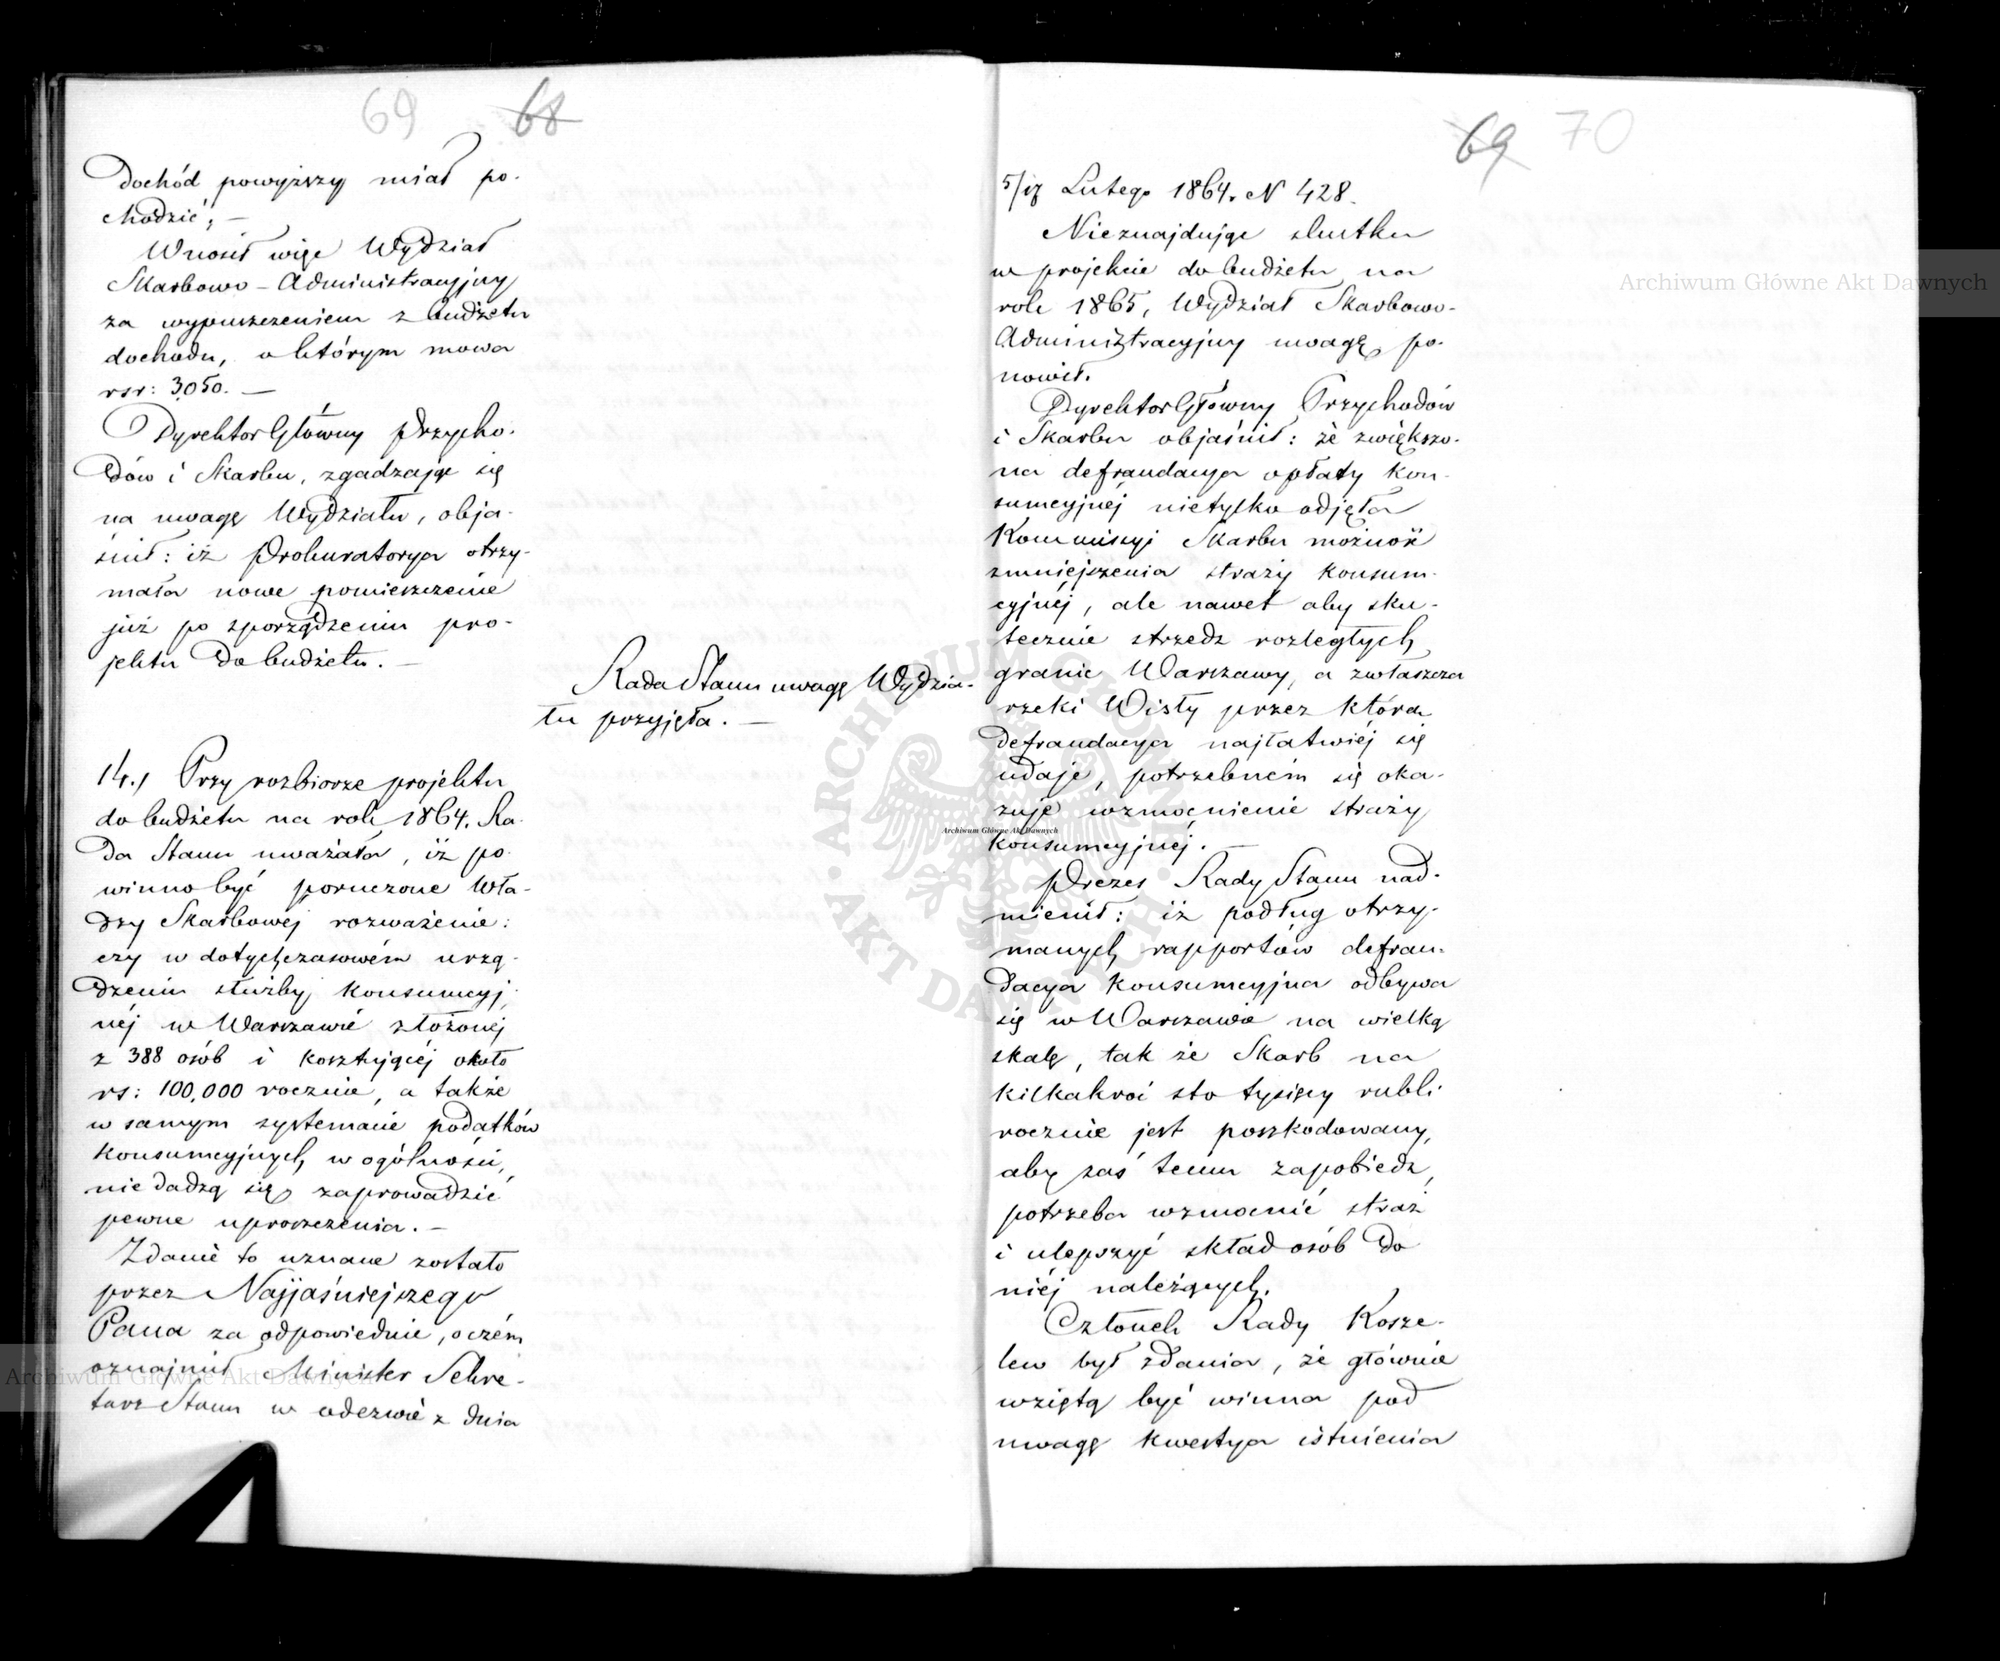 69 68
Dochód powyższy miał po-
chodzić; —
Wnosił więc Wydział
Skarbowo-Administracyjny
za wypuszczeniem z budżetu
dochodu, o którym mowa
rsr: 3,050. —
Dyrektor Główny Przycho-
dów i Skarbu, zgadzając się
na uwagę Wydziału, obja-
śnił: iż Prokuratorya otrzy-
mała nowe pomieszczenie
już po sporządzeniu pro-
jektu do budżetu. —
Rada Stanu uwagę Wydzia-
łu przyjęła. —
14.) Przy rozbiorze projektu
do budżetu na rok 1864. Ra-
da Stanu uważała, iż po-
winno być poruczone Wła-
dzy Skarbowej rozważenie:
czy w dotychczasowém urzą-
dzeniu służby konsumcyj-
néj w Warszawie złożonej
z 388 osób i kosztującéj około
rs: 100,000 rocznie, a także
w samym systemacie podatków
konsumcyjnych w ogólności,
nie dadzą się zaprowadzić
pewne uproszczenia. —
Zdanie to uznane zostało
przez Najjaśniejszego
Pana za odpowiednie, o czém
oznajmił Minister Sekre-
tarz Stanu w odezwie z dnia
69 70
5/17 Lutego 1864. N 428.
Nieznajdując skutku
w projekcie do budżetu na
rok 1865, Wydział Skarbowo-
Administracyjny uwagę po-
nowił.
Dyrektor Główny Przychodów
i Skarbu objaśnił: że zwiększo-
na defraudacya opłaty kon-
sumcyjnéj nietylko odjęła
Kommissyi Skarbu możność
zmniejszenia straży konsum-
cyjnéj, ale nawet aby sku-
tecznie strzedz rozległych
granic Warszawy, a zwłaszcza
rzeki Wisły przez którą
defraudacya najłatwiéj się
udaje, potrzebném się oka-
zuje wzmocnienie straży
konsumcyjnéj.
Prezes Rady Stanu nad-
mienił: iż podług otrzy-
manych rapportów defrau-
dacya konsumcyjna odbywa
się w Warszawie na wielką
skalę, tak że Skarb na
kilkakroć sto tysięcy rubli
rocznie jest poszkodowany,
aby zaś temu zapobiedz,
potrzeba wzmocnić straż
i ulepszyć skład osób do
niéj należących.
Członek Rady Kosze-
lew był zdania, że głównie
wziętą być winna pod
uwagę kwestya istnienia
Archiwum Główne Akt Dawnych
Archiwum Główne Akt Dawnych
Archiwum Główne Akt Dawnych
ARCHIWUM GŁÓWNE AKT DAWNYCH